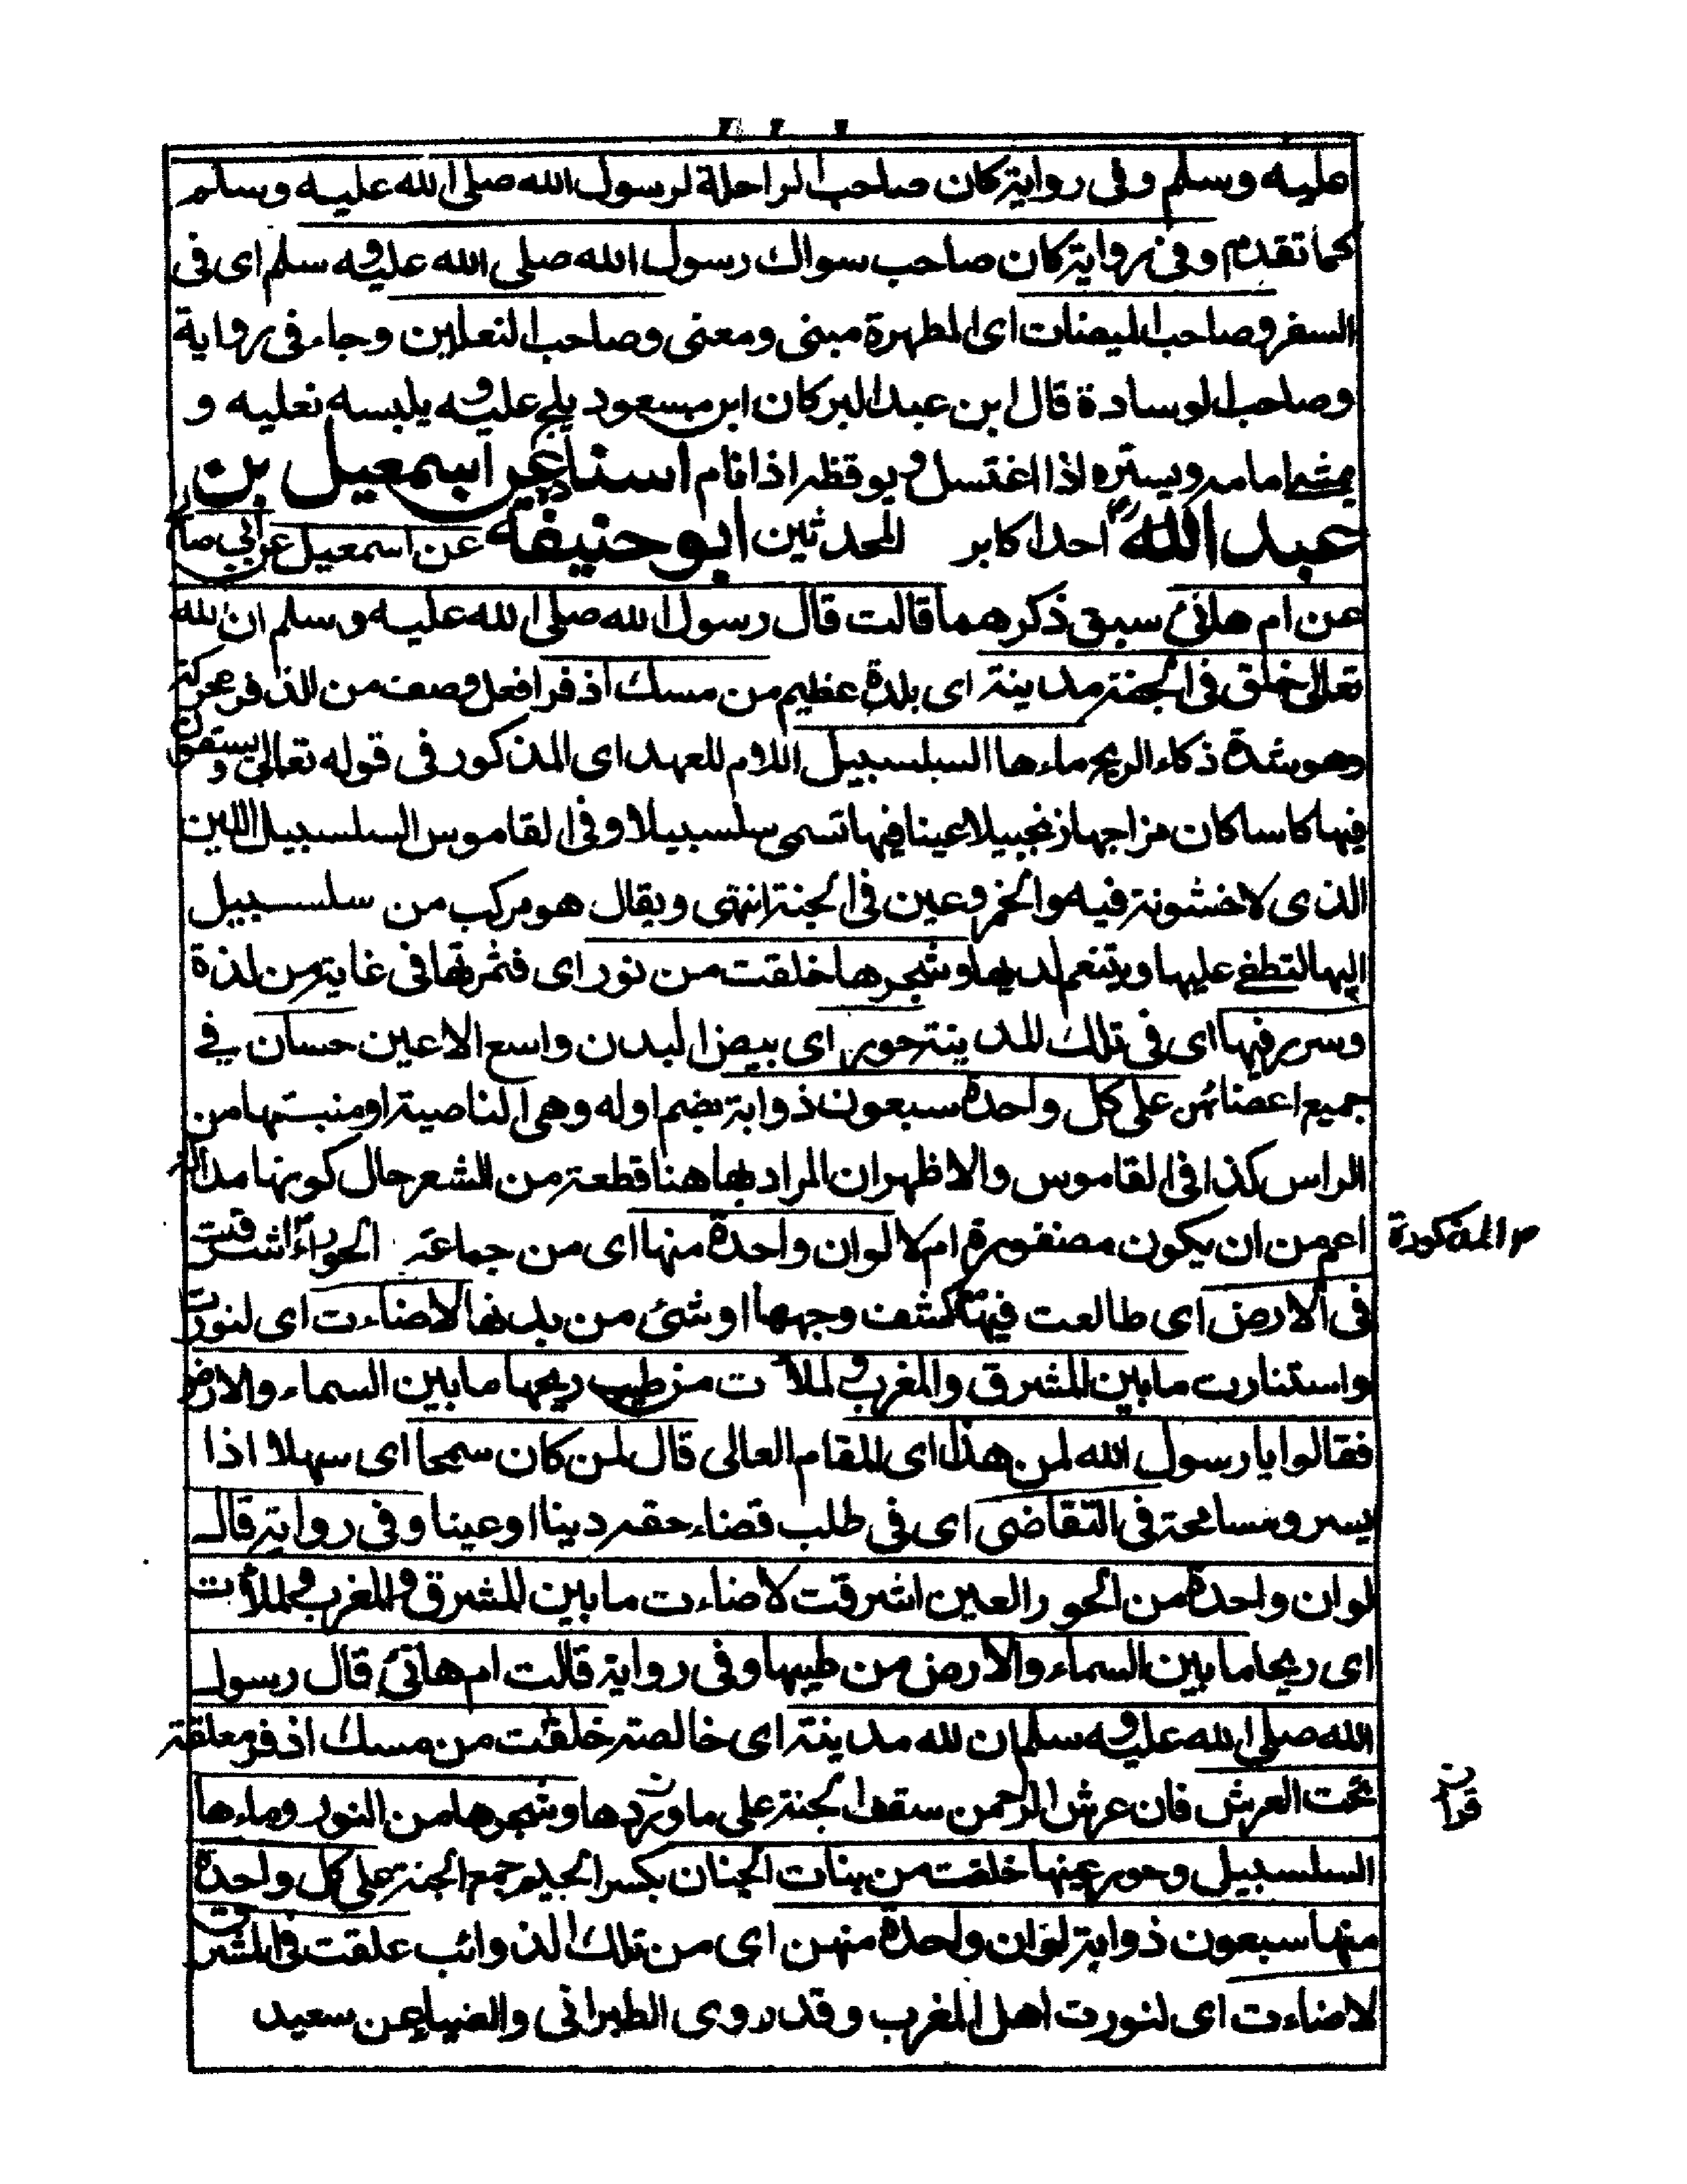 عليه وسلم وفى رواية كان صاحب الراحلة لرسول الله صلى الله عليه وسلم
كما تقدم وفى رواية كان صاحب سواك رسول الله صلى الله عليه وسلم اى فى
السفر وصاحب الميضات اى المطهرة مبنى ومعنى وصاحب النعلين وجاء فى رواية
وصاحب الوسادة قال ابن عبد البر كان ابن مسعود يلج عليه ويلبسه نعليه و
يمشى امامه ويستره اذا اغتسل ويوقظه اذا نام اسناده عن اسمعيل بن
عبد الله احد اكابر المحدثين ابو حنيفة عن اسمعيل عن ابى صالح
عن ام هانئ سبق ذكرهما قالت قال رسول الله صلى الله عليه وسلم ان لله
تعالى خلق فى الجنة مدينة اى بلدة عظيم من مسك اذفر افعل وصف من الذفر محركة
وهو شدة ذكاء الريح ماءها السلسبيل اللام للعهد اى المذكور فى قوله تعالى ويسقون
فيها كاسا كان مزاجها زنجبيلا عينا فيها تسمى سلسبيلا وفى القاموس السلسبيل اللين
الذى لا خشونة فيه والخمر وعين فى الجنة انتهى ويقال هو مركب من سلسبيل
اليها لتطلع عليها ويتنعم لديها وشجرها خلقت من نور اى فثمرتها فى غاية من لذة
وسرر فيها اى فى تلك المدينة حور اى بيض البدن واسع الاعين حسان فى
جميع اعضائهن على كل واحدة سبعون ذوابة بضم اوله وهى الناصية او منبتها من
الراس كذا فى القاموس والاظهر ان المراد بها هنا قطعة من الشعر حال كونها مدالة
اعم من ان يكون مضفورة ام لا لو ان واحدة منها اى من جماعة الحوراء اشرقت
المذكورة
فى الارض اى طالعت فيها كشف وجهها او شئ من بدنها لاضاءت اى لنورت
واستنارت ما بين المشرق والمغرب ولملأت من طيب ريحها ما بين السماء والارض
فقالوا يا رسول الله لمن هذا اى المقام العالى قال لمن كان سمحا اى سهلا اذا
يسر ومسامحة فى التقاضى اى فى طلب قضاء حقه دينا او عينا وفى رواية قال
لو ان واحدة من الحور العين اشرقت لاضاءت ما بين المشرق والمغرب ولملأت
اى ريحا ما بين السماء والارض من طيبها وفى رواية قالت ام هانئ قال رسول
الله صلى الله عليه وسلم ان لله مدينة اى خالصة خلقت من مسك اذفر معلقة
تحت العرش فان عرش الرحمن سقف الجنة على ما ورد وشجرها من النور وماءها
السلسبيل وحور عينها خلقت من بنات الجنان بكسر الجيم جمع الجنة على كل واحدة
منها سبعون ذوابة لو ان واحدة منهن اى من تلك الذوائب علقت فى المشرق
لاضاءت اى لنورت اهل المغرب وقد روى الطبرانى والضياء عن سعيد